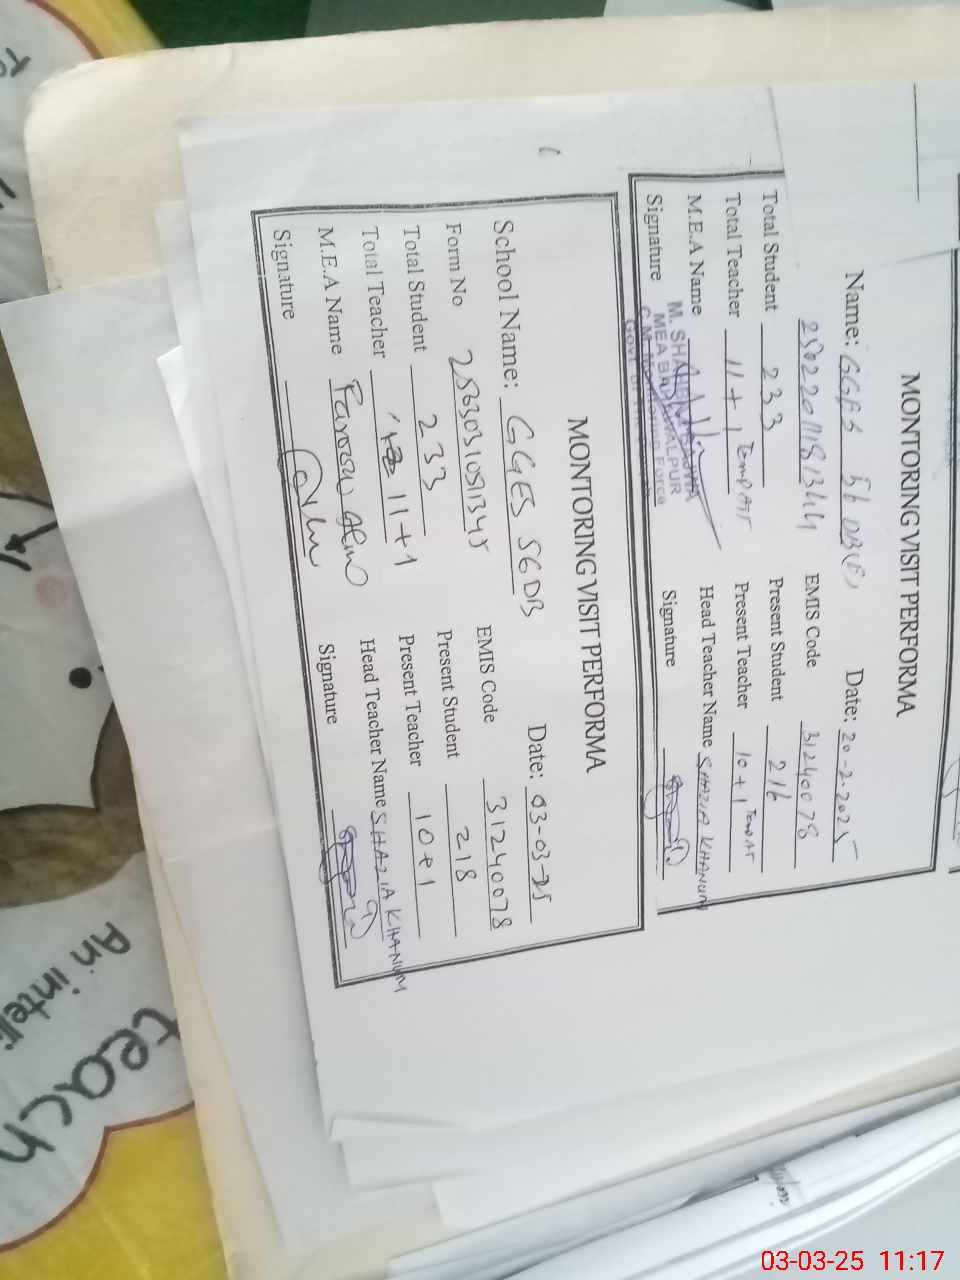 MONTORING VISIT PERFORMA
Name: GGES 56 DB(E) Date: 20-2-2025
EMIS Code 31240078
Total Student 233 Present Student 216
Total Teacher 11+1 Present Teacher 10+1
M.E.A Name Head Teacher Name SHAZIA KHANUM
Signature Signature
MEA BAHAWALPUR
MONTORING VISIT PERFORMA
School Name: GGES 56DB Date: 03-03-25
Form No EMIS Code 31240078
Total Student 233 Present Student 218
Total Teacher 11+1 Present Teacher 10+1
M.E.A Name Head Teacher Name SHAZIA KHANUM
Signature Signature
An intelli
teach
03-03-25 11:17